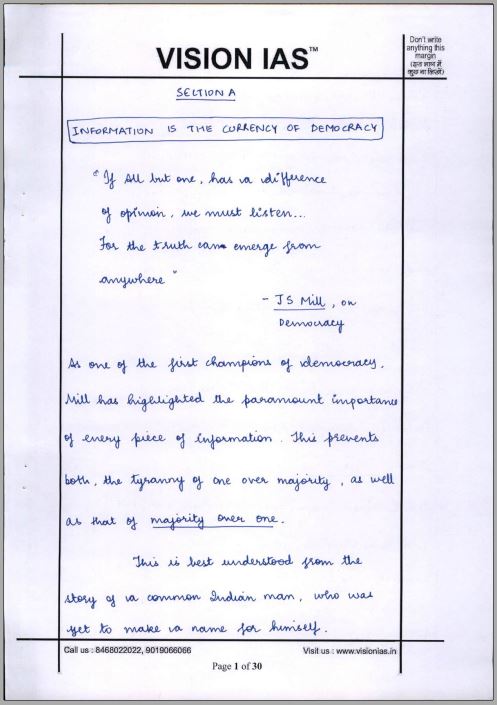 VISION IAS™
Don't write
anything this
margin
(इस भाग में
कुछ ना लिखें)
SECTION A
INFORMATION IS THE CURRENCY OF DEMOCRACY
"If all but one, has a difference
of opinion, we must listen...
For the truth can emerge from
anywhere"
- JS Mill, on
Democracy
As one of the first champions of democracy,
Mill has highlighted the paramount importance
of every piece of information. This prevents
both, the tyranny of one over majority, as well
as that of majority over one.
This is best understood from the
story of a common Indian man, who was
yet to make a name for himself.
Call us : 8468022022, 9019066066
Visit us : www.visionias.in
Page 1 of 30